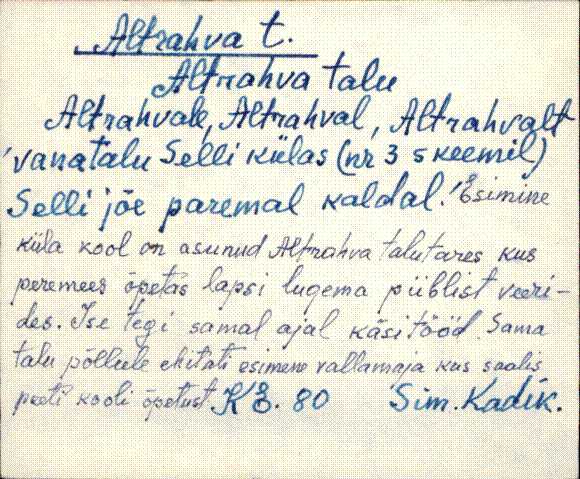 Altrahva t.
Altrahva talu
Altrahvale, Altrahval, Altrahvalt
'vanatalu Selli külas (nr 3 skeemil)
Selli jõe paremal kaldal.' Esimine
küla kool on asunud Altrahva talutares kus
peremees õpetas lapsi lugema piiblist veeri-
des. Ise tegi samal ajal käsitööd. Sama
talu põllule ehitati esimene vallamaja kus saalis
peeti kooli õpetust. KE. 80 Sim. Kadik.